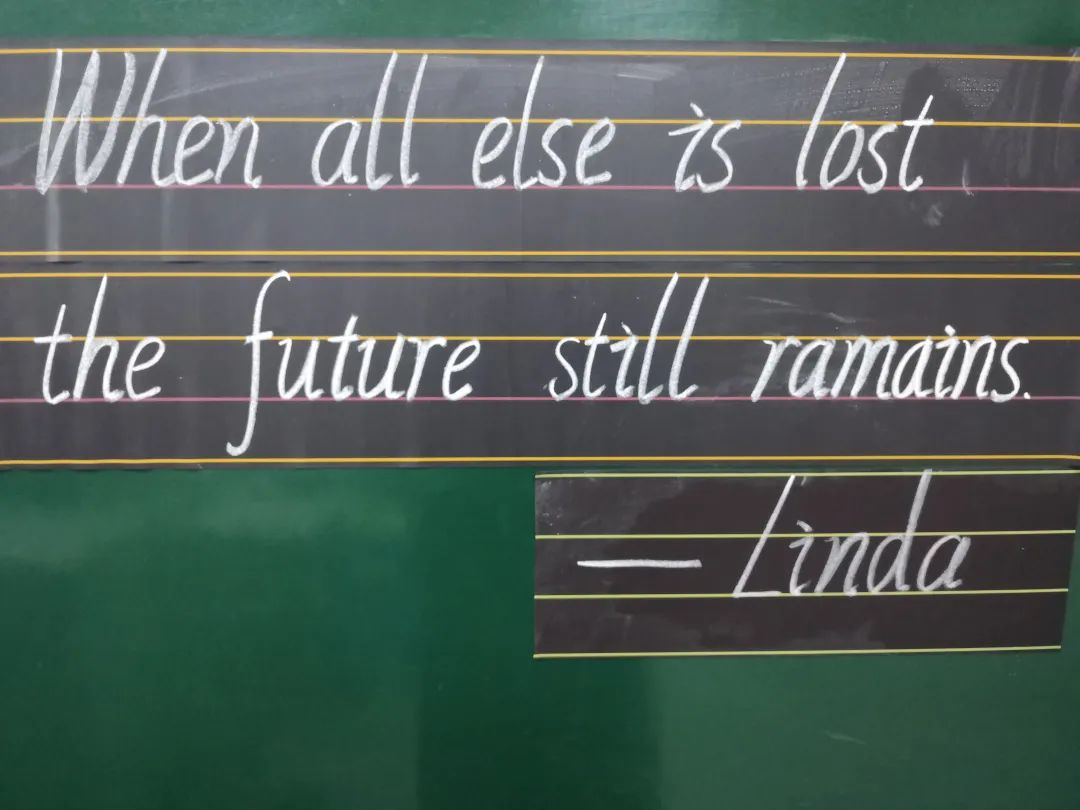 When all else is lost
the future still ramains.
— Linda